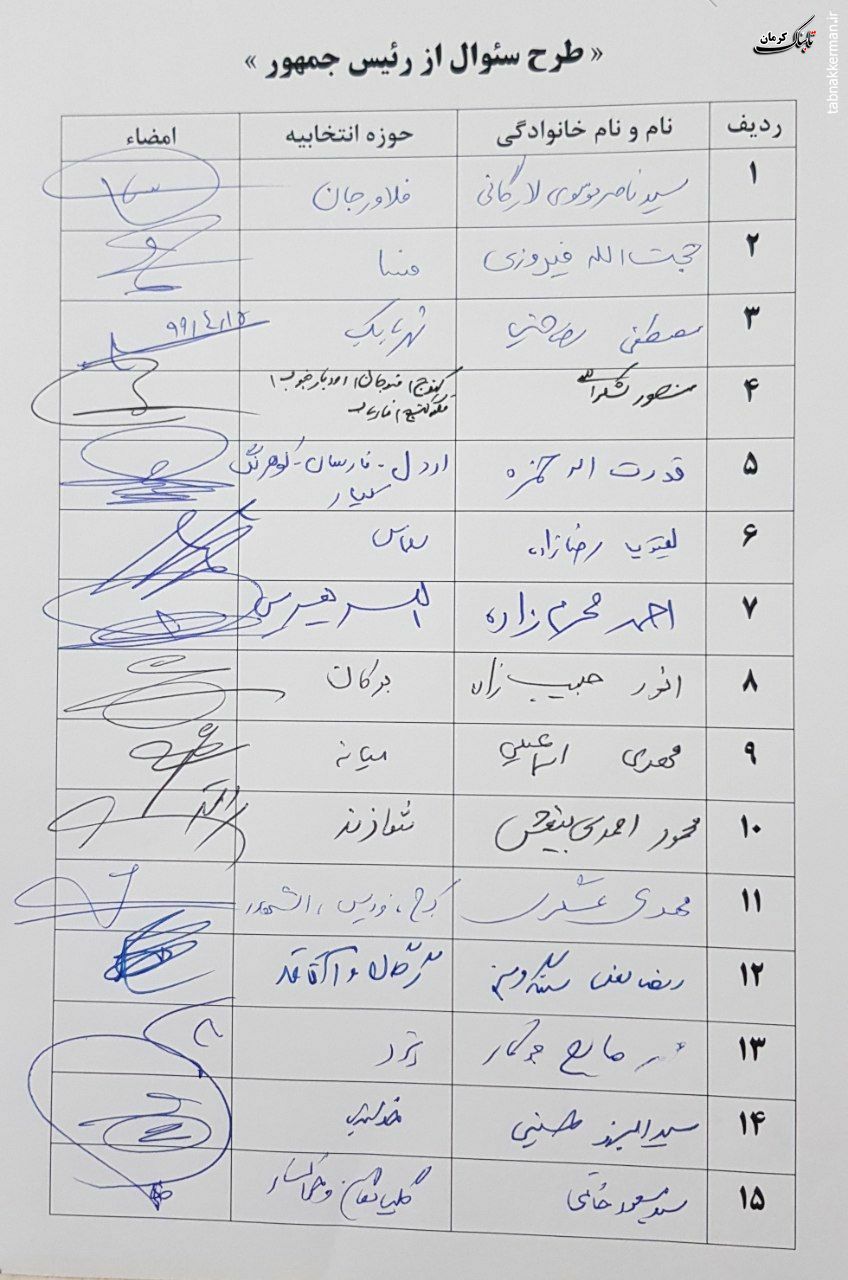 تابناک کرمان
tabnakkerman.ir
« طرح سئوال از رئیس جمهور »
ردیف نام و نام خانوادگی حوزه انتخابیه امضاء
۱ سید ناصر موسوی لارگانی فلاورجان
۲ حجت الله فیروزی فسا
۳ مصطفی شهربابک ۹۹/۴/۱۵
۴ منصور شکرالهی کهنوج
۵ قدرت اله حمزه اردل - فارسان - کوهرنگ
کیار
۶ یعقوب رضازاده سلماس
۷ احمد محرم زاده اهر هریس
۸ انور حبیب زاده بوکان
۹ مهدی اسماعیلی میانه
۱۰ محمود احمدی بیغش شازند
۱۱ مهدی عسگری کرج، فردیس، اشتهارد
۱۲
۱۳ صالح جوکار یزد
۱۴ سید البرز حسینی خدابنده
۱۵ سید مسعود خاتمی گلپایگان و خوانسار